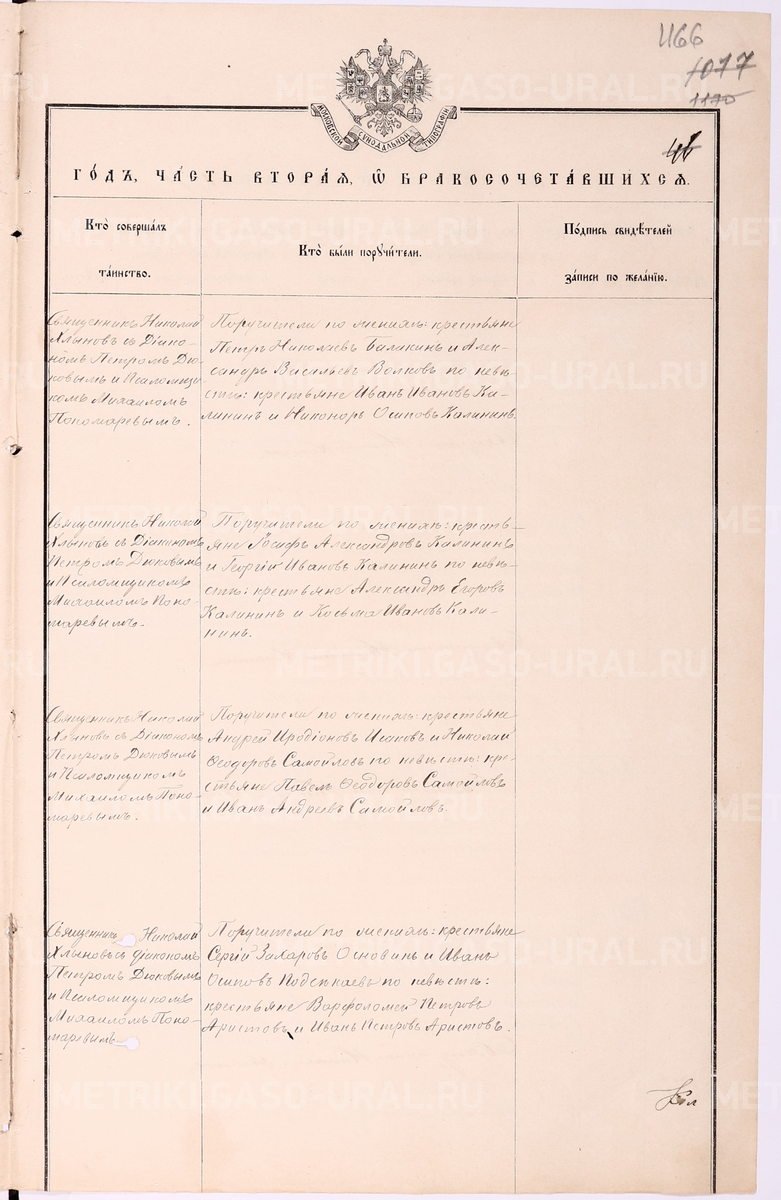 466
1077
1170
МОСКОВСКОЙ СУНОДАЛЬНОЙ ТИПОГРАФІИ
ГО́ДЪ, ЧА́СТЬ ВТОРА́Я, Ѡ БРАКОСОЧЕТА́ВШИХСЯ.
Кто̀ соверша́лъ
та́инство.
Кто̀ бы́ли порꙋчи́тели.
По́дпись свидѣ́телей
за́писи по жела́нїю.
Священникъ Николай
Хлыновъ съ Діако-
номъ Петромъ Дю-
ковымъ и Псаломщи-
комъ Михаиломъ
Пономаревымъ.
Поручители по женихѣ: крестьяне
Петръ Николаевъ Галикинъ и Алек-
сандръ Васильевъ Волковъ по невѣ-
стѣ: крестьяне Иванъ Ивановъ Ка-
лининъ и Никоноръ Осиповъ Калининъ.
Священникъ Николай
Хлыновъ съ Діакономъ
Петромъ Дюковымъ
и Псаломщикомъ
Михаиломъ Поно-
маревымъ.
Поручители по женихѣ: кресть-
яне Іосифъ Александровъ Калининъ
и Георгій Ивановъ Калининъ по невѣ-
стѣ: крестьяне Александръ Егоровъ
Калининъ и Косьма Ивановъ Кали-
нинъ.
Священникъ Николай
Хлыновъ съ Діакономъ
Петромъ Дюковымъ
и Псаломщикомъ
Михаиломъ Поно-
маревымъ.
Поручители по женихѣ: крестьяне
Андрей Иродіоновъ Исаковъ и Николай
Ѳеодоровъ Самойловъ по невѣстѣ: кре-
стьяне Павелъ Ѳеодоровъ Самойловъ
и Иванъ Андреевъ Самойловъ.
Священникъ Николай
Хлыновъ съ діакономъ
Петромъ Дюковымъ
и Псаломщикомъ
Михаиломъ Поно-
маревымъ.
Поручители по женихѣ: крестьяне
Сергій Захаровъ Основинъ и Иванъ
Осиповъ по невѣстѣ:
крестьяне Варфоломей Петровъ
Аристовъ и Иванъ Петровъ Аристовъ.
METRIKI.GASO-URAL.RU